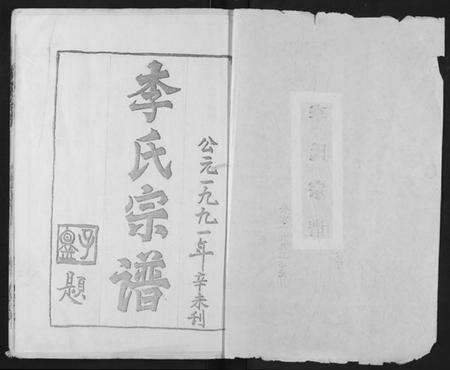 公元一九九一年辛未刊
李氏宗谱
題
李氏宗譜